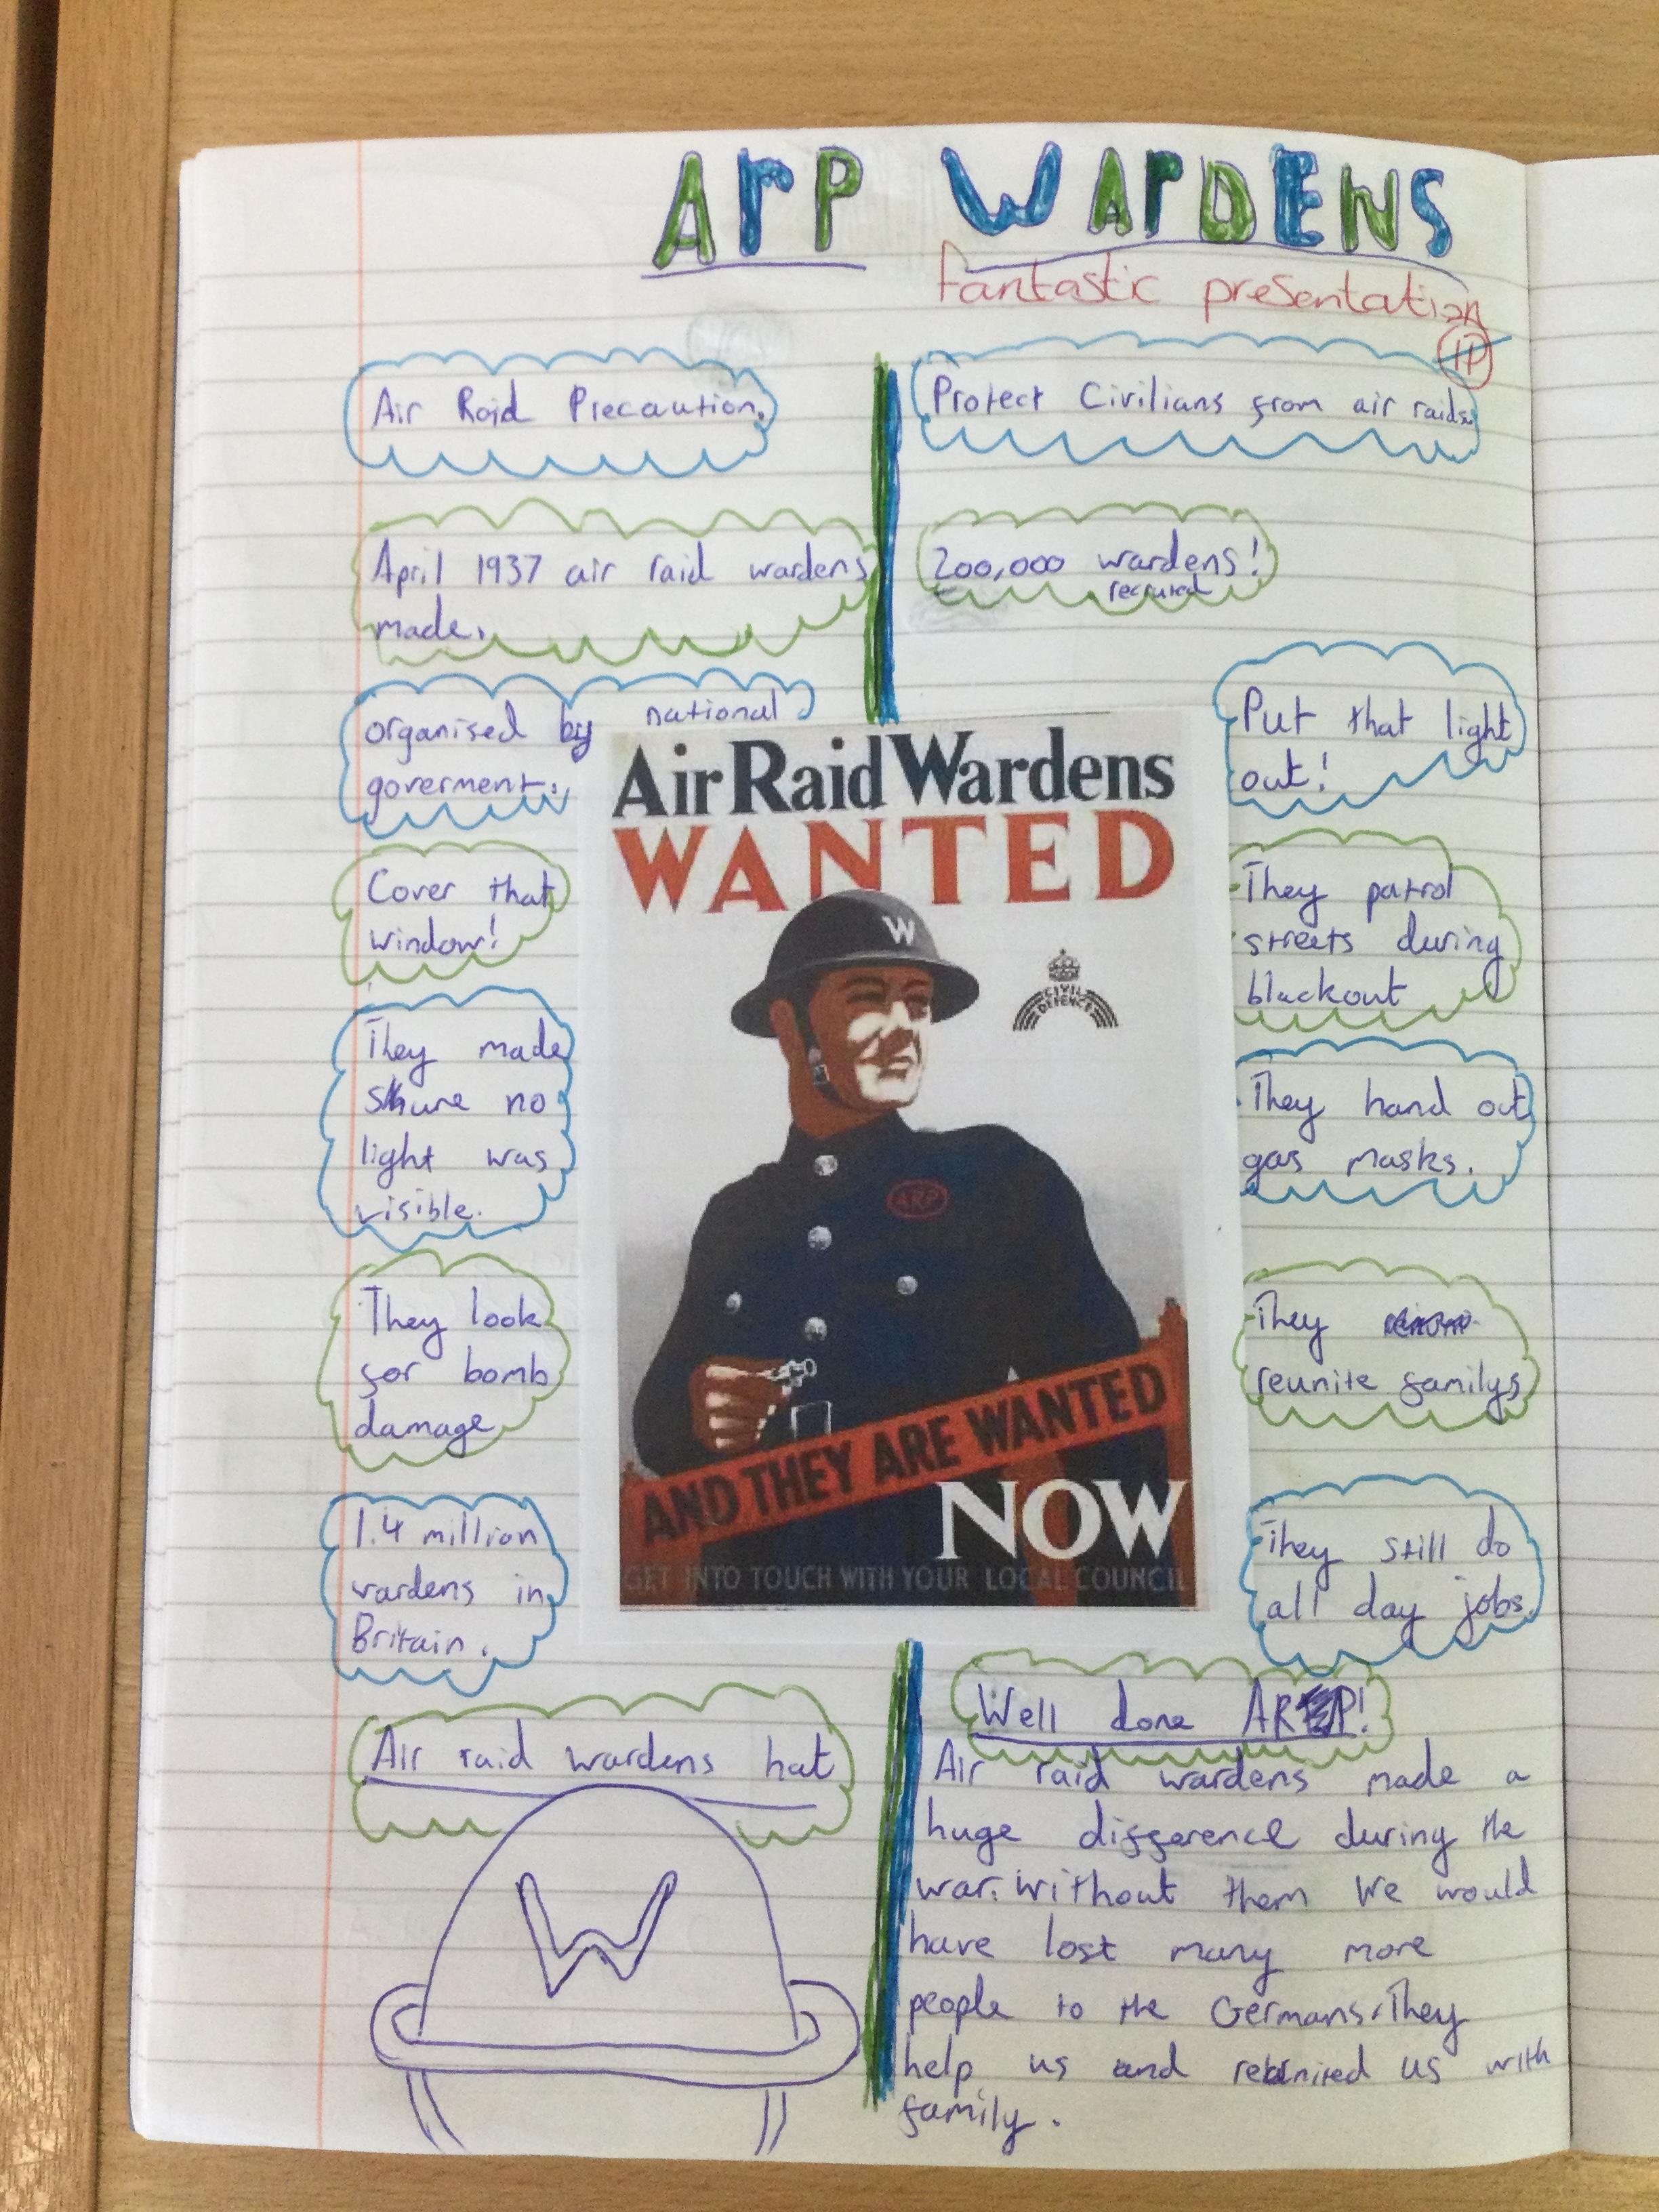 ArP WArDENS
fantastic presentation
1P
Air Raid Precaution.
Protect Civilians from air raids.
April 1937 air raid wardens
made.
200,000 wardens!
recruited
organised by national
goverment.
Put that light
out!
Cover that
window!
They patrol
streets during
blackout
They made
shure no
light was
visible.
They hand out
gas masks.
They look
for bomb
damage
They
reunite familys
1.4 million
wardens in
Britain.
They still do
all day jobs.
Air Raid Wardens
WANTED
W
CIVIL
DEFENCE
ARP
AND THEY ARE WANTED
NOW
GET INTO TOUCH WITH YOUR LOCAL COUNCIL
Air raid wardens hat
W
Well done ARP!
Air raid wardens made a
huge difference during the
war. without them we would
have lost many more
people to the Germans. They
help us and reunited us with
family.